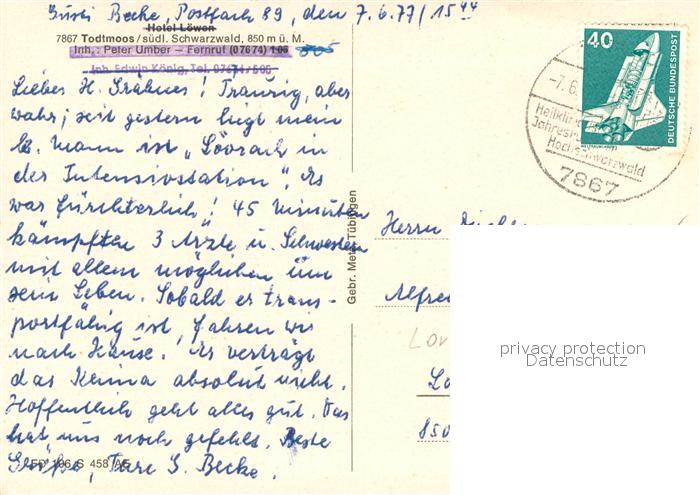 Gusti Becke, Postfach 89, den 7.6.77/15⁴⁴
Hotel Löwen
7867 Todtmoos / südl. Schwarzwald, 850 m ü. M.
Inh.: Peter Umber – Fernruf (07674) 106 505
Inh. Edwin König, Tel. 07674/505
Liebes H. Grähnes! Traurig, aber
wahr; seit gestern liegt mein
lb. Mann ist "Lörrach in
der Intensivstation". Es
war fürchterlich! 45 Minuten
kämpften 3 Ärzte u. Schwestern
mit allem möglichen um
sein Leben. Sobald er trans-
portfähig ist, fahren wir
nach Hause. Er verträgt
das Keima absolut nicht.
Hoffentlich geht alles gut. Das
hat uns noch gefehlt. Beste
Grüße, Ihre G. Becke.
196 S 458 AE
Gebr. Metz Tübingen
40
DEUTSCHE BUNDESPOST
-7.6.
Heilklim
Jahres
Hochschwarzwald
7867
Herrn
Alfre
Lor
Lo
850
privacy protection
Datenschutz